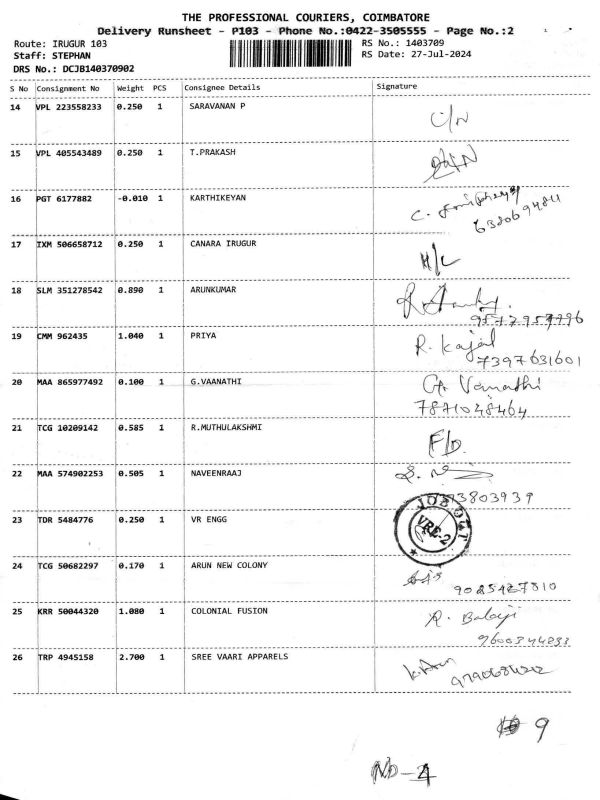 THE PROFESSIONAL COURIERS, COIMBATORE
Delivery Runsheet - P103 - Phone No.:0422-3505555 - Page No.:2
Route: IRUGUR 103
RS No.: 1403709
Staff: STEPHAN
RS Date: 27-Jul-2024
DRS No.: DCJB140370902
S No Consignment No Weight PCS Consignee Details Signature
14 VPL 223558233 0.250 1 SARAVANAN P
15 VPL 405543489 0.250 1 T.PRAKASH
16 PGT 6177882 -0.010 1 KARTHIKEYAN
6380694811
17 IXM 506658712 0.250 1 CANARA IRUGUR
18 SLM 351278542 0.890 1 ARUNKUMAR
19 CMM 962435 1.040 1 PRIYA R. Kajal
7397631601
20 MAA 865977492 0.100 1 G.VAANATHI G. Vanathi
7871048464
21 TCG 10209142 0.585 1 R.MUTHULAKSHMI F/D.
22 MAA 574902253 0.505 1 NAVEENRAAJ
23 TDR 5484776 0.250 1 VR ENGG
VRE-2
24 TCG 50682297 0.170 1 ARUN NEW COLONY
25 KRR 50044320 1.080 1 COLONIAL FUSION R. Balaji
26 TRP 4945158 2.700 1 SREE VAARI APPARELS
9
ND-4